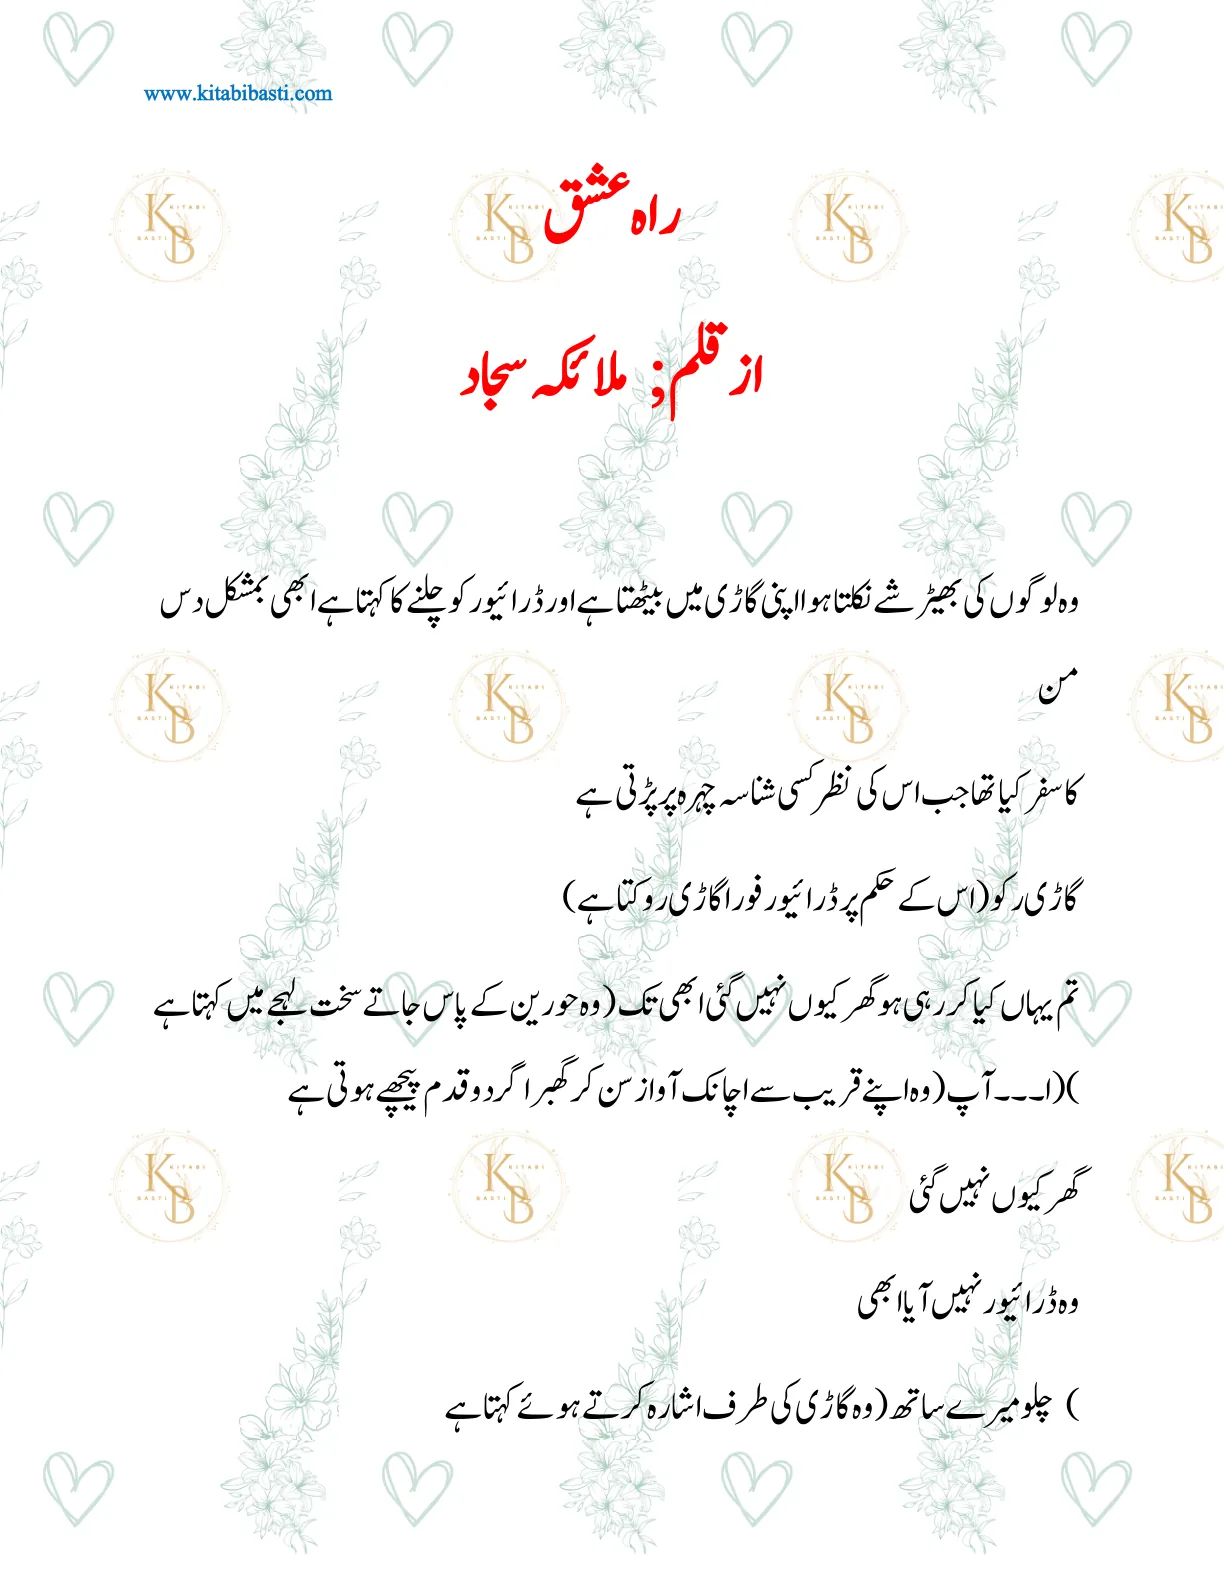 www.kitabibasti.com
راہ عشق
از قلم; ملائکہ سجاد
وہ لوگوں کی بھیڑ شے نکلتا ہوا اپنی گاڑی میں بیٹھتا ہے اور ڈرائیور کو چلنے کا کہتا ہے ابھی بمشکل دس
من
کا سفر کیا تھا جب اس کی نظر کسی شناسہ چہرہ پر پڑتی ہے
گاڑی رکو (اس کے حکم پر ڈرائیور فورا گاڑی روکتا ہے)
تم یہاں کیا کر رہی ہو گھر کیوں نہیں گئی ابھی تک (وہ حورین کے پاس جاتے سخت لہجے میں کہتا ہے
)(ا۔۔۔ آپ (وہ اپنے قریب سے اچانک آواز سن کر گھبرا گر دو قدم پیچھے ہوتی ہے
گھر کیوں نہیں گئی
وہ ڈرائیور نہیں آیا ابھی
) چلو میرے ساتھ (وہ گاڑی کی طرف اشارہ کرتے ہوئے کہتا ہے
KITABI BASTI